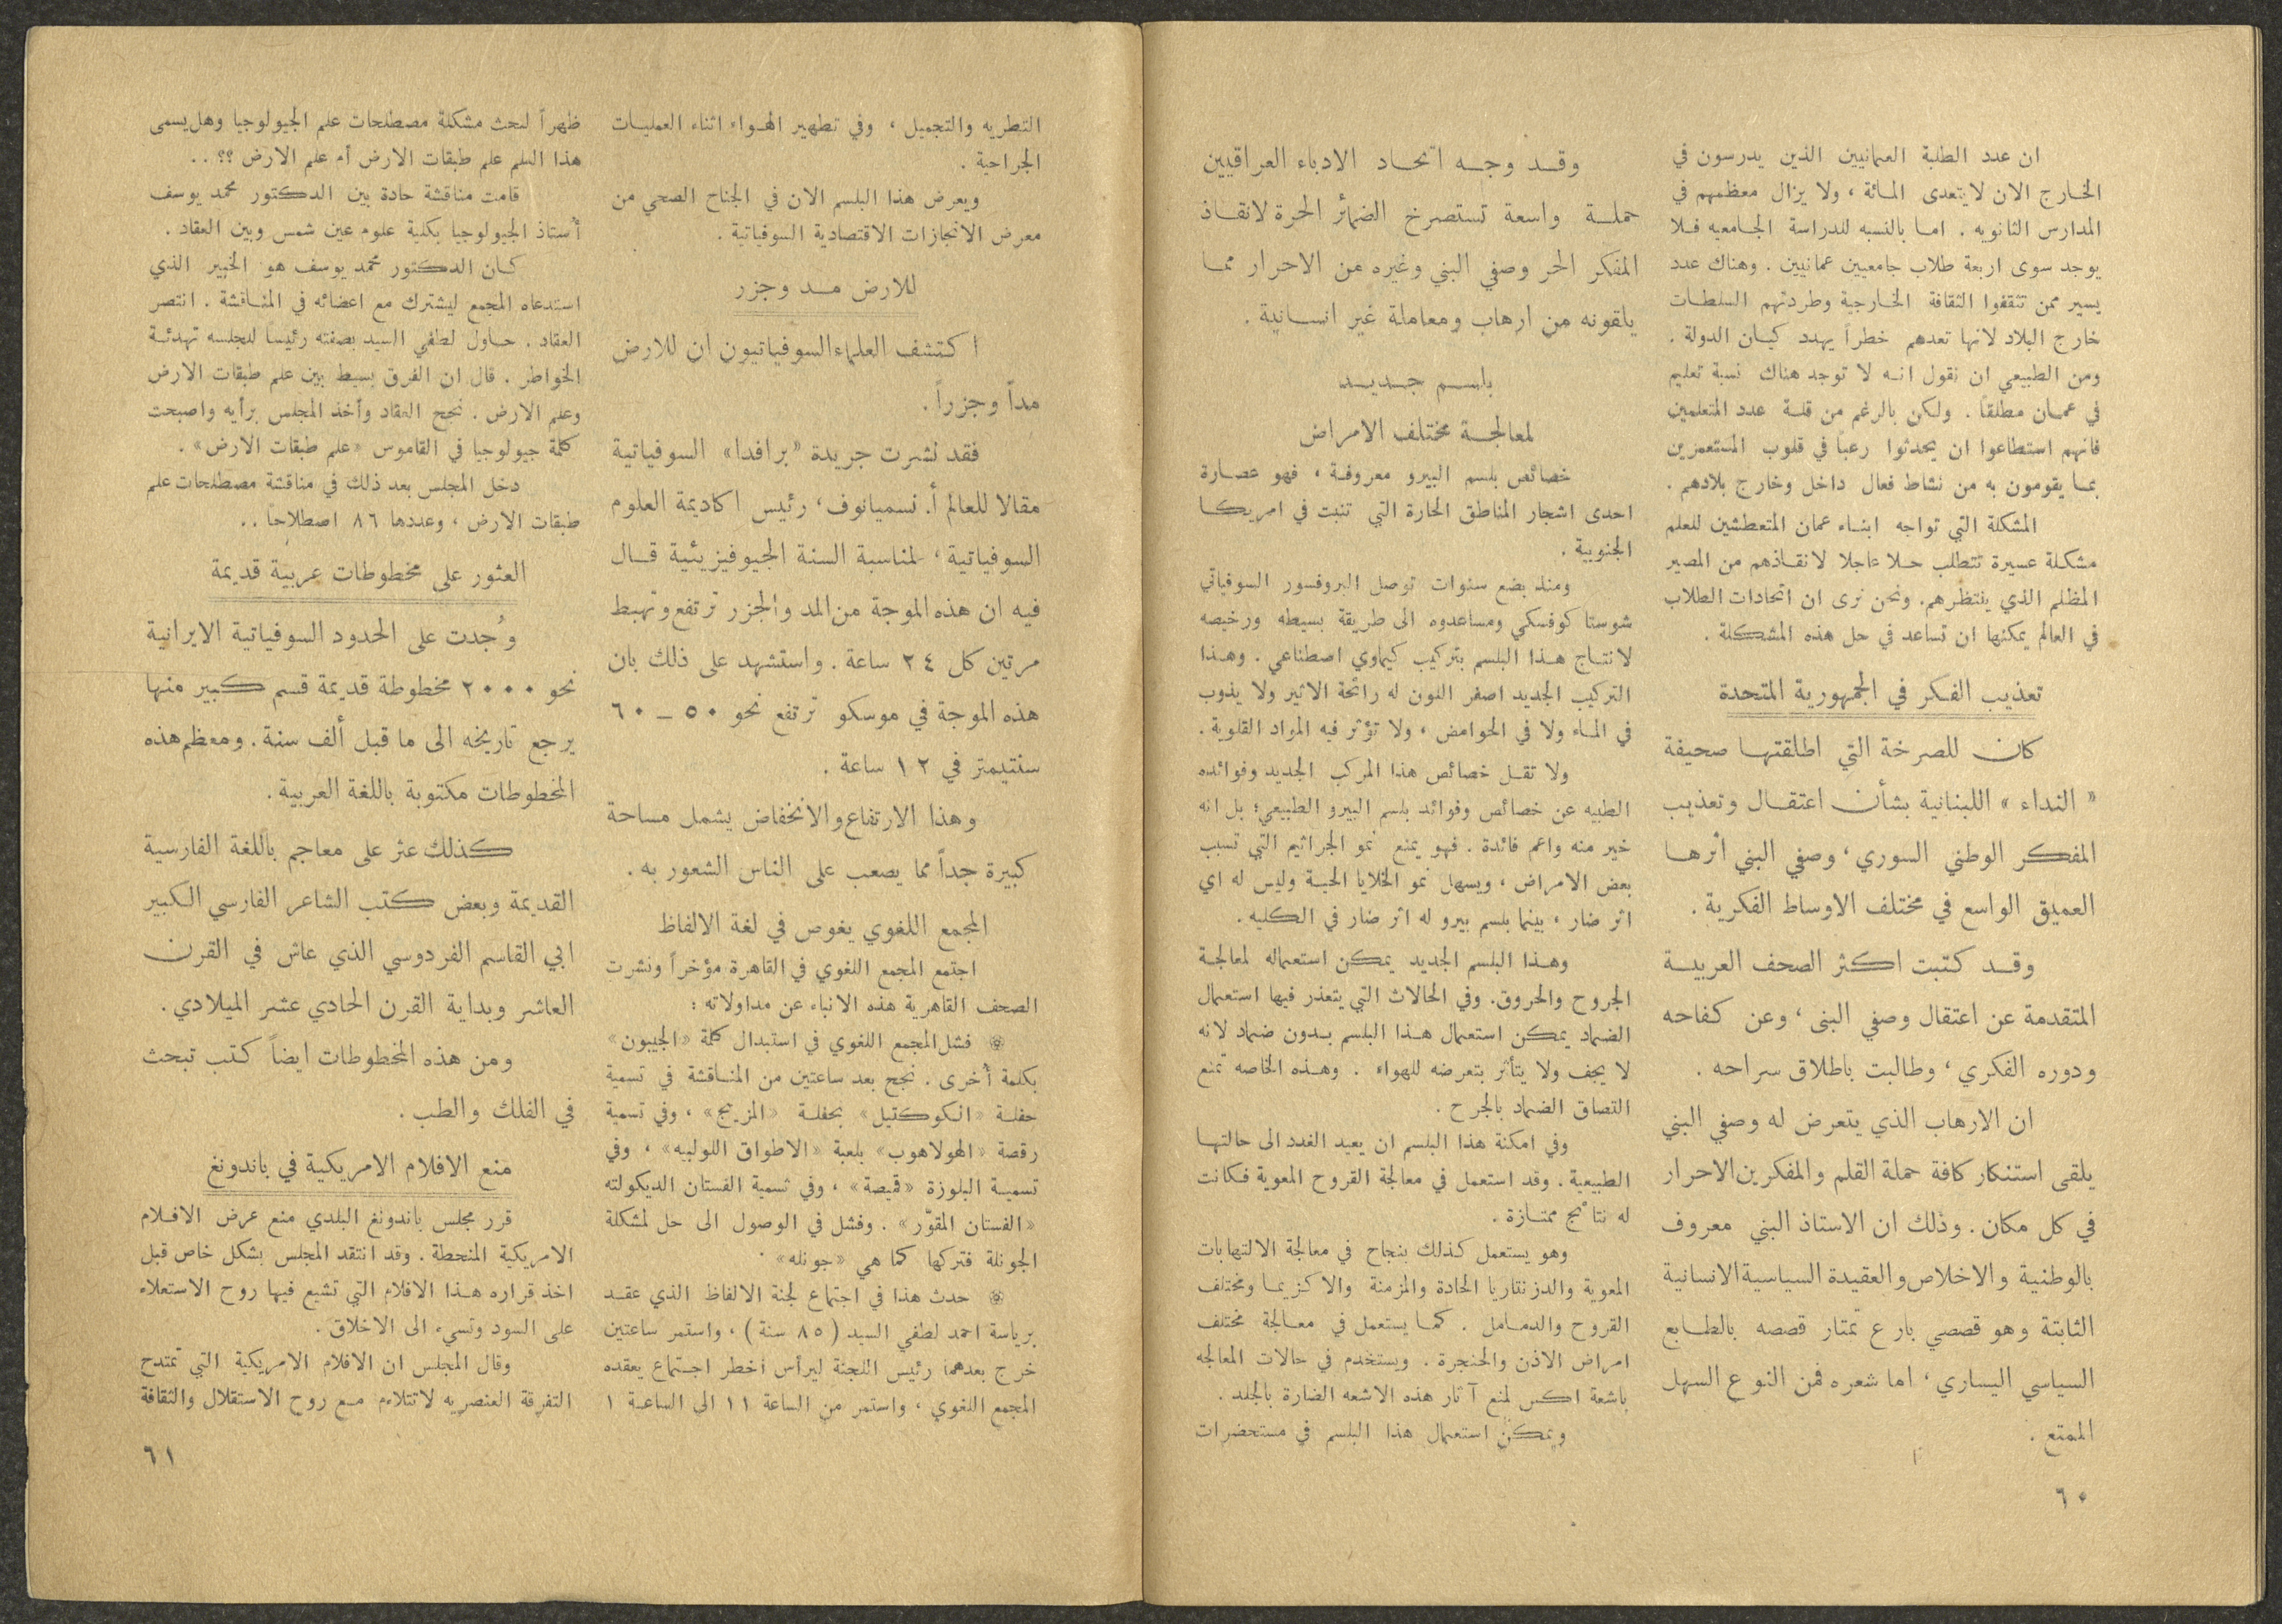 ان عدد الطلبة العمانيين الذين يدرسون في
الخارج الان لايتعدى المائة ، ولا يزال معظمهم في
المدارس الثانويه . اما بالنسبه للدراسة الجامعيه فلا
يوجد سوى اربعة طلاب جامعيين عمانيين . وهناك عدد
يسير ممن تثقفوا الثقافة الخارجية وطردتهم السلطات
خارج البلاد لانها تعدهم خطراً يهدد كيان الدولة .
ومن الطبيعي ان نقول انه لا توجد هناك نسبة تعليم
في عمان مطلقاً . ولكن بالرغم من قلة عدد المتعلمين
فانهم استطاعوا ان يحدثوا رعباً في قلوب المستعمرين
بما يقومون به من نشاط فعال داخل وخارج بلادهم .
المشكلة التي تواجه ابناء عمان المتعطشين للعلم
مشكلة عسيرة تتطلب حلا عاجلا لانقاذهم من المصير
المظلم الذي ينتظرهم. ونحن نرى ان اتحادات الطلاب
في العالم يمكنها ان تساعد في حل هذه المشكلة .
تعذيب الفكر في الجمهورية المتحدة
كان للصرخة التي اطلقتها صحيفة
« النداء » اللبنانية بشأن اعتقال وتعذيب
المفكر الوطني السوري ، وصفي البني أثرها
العميق الواسع في مختلف الاوساط الفكرية .
وقد كتبت اكثر الصحف العربية
المتقدمة عن اعتقال وصفي البنى ، وعن كفاحه
ودوره الفكري ، وطالبت باطلاق سراحه .
ان الارهاب الذي يتعرض له وصفي البني
يلقى استنكار كافة حملة القلم والمفكرين الاحرار
في كل مكان . وذلك ان الاستاذ البني معروف
بالوطنية والاخلاص والعقيدة السياسية الانسانية
الثابتة وهو قصصي بارع تمتار قصصه بالطابع
السياسي اليساري ، اما شعره فمن النوع السهل
الممتع .
٦٠
وقد وجه اتحاد الادباء العراقيين
حملة واسعة تستصرخ الضمائر الحرة لانقاذ
المفكر الحر وصفي البني وغيره من الاحرار مما
يلقونه من ارهاب ومعاملة غير انسانية .
باسم جديد
لمعالجة مختلف الامراض
خصائص بلسم البيرو معروفة ، فهو عصارة
احدى اشجار المناطق الحارة التي تنبت في امريكا
الجنوبية .
ومنذ بضع سنوات توصل البروفسور السوفياتي
شوستا كوفسكي ومساعدوه الى طريقة بسيطه ورخيصه
لانتاج هذا البلسم بتركيب كيماوي اصطناعي . وهذا
التركيب الجديد اصفر اللون له رائحة الاثير ولا يذوب
في الماء ولا في الحوامض ، ولا تؤثر فيه المواد القلوية .
ولا تقل خصائص هذا المركب الجديد وفوائده
الطبيه عن خصائص وفوائد بلسم البيرو الطبيعي؛ بل انه
خير منه واعم فائدة . فهو يمنع نمو الجراثيم التي تسبب
بعض الامراض ، ويسهل نمو الخلايا الحية وليس له اي
اثر ضار ، بينما بلسم بيرو له اثر ضار في الكليه .
وهذا البلسم الجديد يمكن استعماله لمعالجة
الجروح والحروق. وفي الحالات التي يتعذر فيها استعمال
الضماد يمكن استعمال هذا البلسم بدون ضماد لانه
لا يجف ولا يتأثر بتعرضه للهواء . وهذه الخاصه تمنع
التصاق الضماد بالجرح .
وفي امكنة هذا البلسم ان يعيد الغدد الى حالتها
الطبيعية . وقد استعمل في معالجة القروح المعوية فكانت
له نتائج ممتازة .
وهو يستعمل كذلك بنجاح في معالجة الالتهابات
المعوية والدزنتاريا الحادة والمزمنة والاكزيما ومختلف
القروح والدمامل . كما يستعمل في معالجة مختلف
امراض الاذن والحنجرة . ويستخدم في حالات المعالجه
باشعة اكس لمنع آثار هذه الاشعه الضارة بالجلد .
ويمكن استعمال هذا البلسم في مستحضرات
التطريه والتجميل ، وفي تطهير الهواء اثناء العمليات
الجراحية .
ويعرض هذا البلسم الان في الجناح الصحي من
معرض الانجازات الاقتصادية السوفياتية .
للارض مد وجزر
اكتشف العلماء السوفياتيون ان للارض
مداً وجزراً .
فقد نشرت جريدة «برافدا» السوفياتية
مقالا للعالم أ. نسميانوف ، رئيس اكاديمة العلوم
السوفياتية ، لمناسبة السنة الجيوفيزيئية قال
فيه ان هذه الموجة من المد والجزر ترتفع وتهبط
مرتين كل ٢٤ ساعة . واستشهد على ذلك بان
هذه الموجة في موسكو ترتفع نحو ٥٠ – ٦٠
سنتيمتر في ١٢ ساعة .
وهذا الارتفاع والانخفاض يشمل مساحة
كبيرة جداً مما يصعب على الناس الشعور به .
المجمع اللغوي يغوص في لغة الالفاظ
اجتمع المجمع اللغوي في القاهرة مؤخراً ونشرت
الصحف القاهرية هذه الانباء عن مداولاته :
❁ فشل المجمع اللغوي في استبدال كلمة «الجيبون»
بكلمة أخرى . نجح بعد ساعتين من المناقشة في تسمية
حفلة «الكوكتيل» بحفلة «المزيج» ، وفي تسمية
رقصة «الهولاهوب» بلعبة «الاطواق اللولبيه» ، وفي
تسمية البلوزة «قميصة» ، وفي تسمية الفستان الديكولته
«الفستان المقوّر» . وفشل في الوصول الى حل لمشكلة
الجونلة فتركها كما هي «جونله» .
❁ حدث هذا في اجتماع لجنة الالفاظ الذي عقد
برياسة احمد لطفي السيد (٨٥ سنة) ، واستمر ساعتين
خرج بعدهما رئيس اللجنة ليرأس اخطر اجتماع يعقده
المجمع اللغوي ، واستمر من الساعة ١١ الى الساعة ١
ظهراً لبحث مشكلة مصطلحات علم الجيولوجيا وهل يسمى
هذا العلم علم طبقات الارض أم علم الارض ؟؟ . .
قامت مناقشة حادة بين الدكتور محمد يوسف
أستاذ الجيولوجيا بكلية علوم عين شمس وبين العقاد .
كان الدكتور محمد يوسف هو الخبير الذي
استدعاه المجمع ليشترك مع اعضائه في المناقشة . انتصر
العقاد . حاول لطفي السيد بصفته رئيسا للجلسه تهدئة
الخواطر . قال ان الفرق بسيط بين علم طبقات الارض
وعلم الارض . نجح العقاد وأخذ المجلس برأيه واصبحت
كلمة جيولوجيا في القاموس «علم طبقات الارض» .
دخل المجلس بعد ذلك في مناقشة مصطلحات علم
طبقات الارض ، وعددها ٨٦ اصطلاحاً . .
العثور على مخطوطات عربية قديمة
وُجدت على الحدود السوفياتية الايرانية
نحو ٢٠٠٠ مخطوطة قديمة قسم كبير منها
يرجع تاريخه الى ما قبل ألف سنة . ومعظم هذه
المخطوطات مكتوبة باللغة العربية .
كذلك عثر على معاجم باللغة الفارسية
القديمة وبعض كتب الشاعر الفارسي الكبير
ابي القاسم الفردوسي الذي عاش في القرن
العاشر وبداية القرن الحادي عشر الميلادي .
ومن هذه المخطوطات ايضاً كتب تبحث
في الفلك والطب .
منع الافلام الامريكية في باندونغ
قرر مجلس باندونغ البلدي منع عرض الافلام
الامريكية المنحطة . وقد انتقد المجلس بشكل خاص قبل
اخذ قراره هذا الافلام التي تشيع فيها روح الاستعلاء
على السود وتسيء الى الاخلاق .
وقال المجلس ان الافلام الامريكية التي تمتدح
التفرقة العنصريه لاتتلاءم مع روح الاستقلال والثقافة
٦١